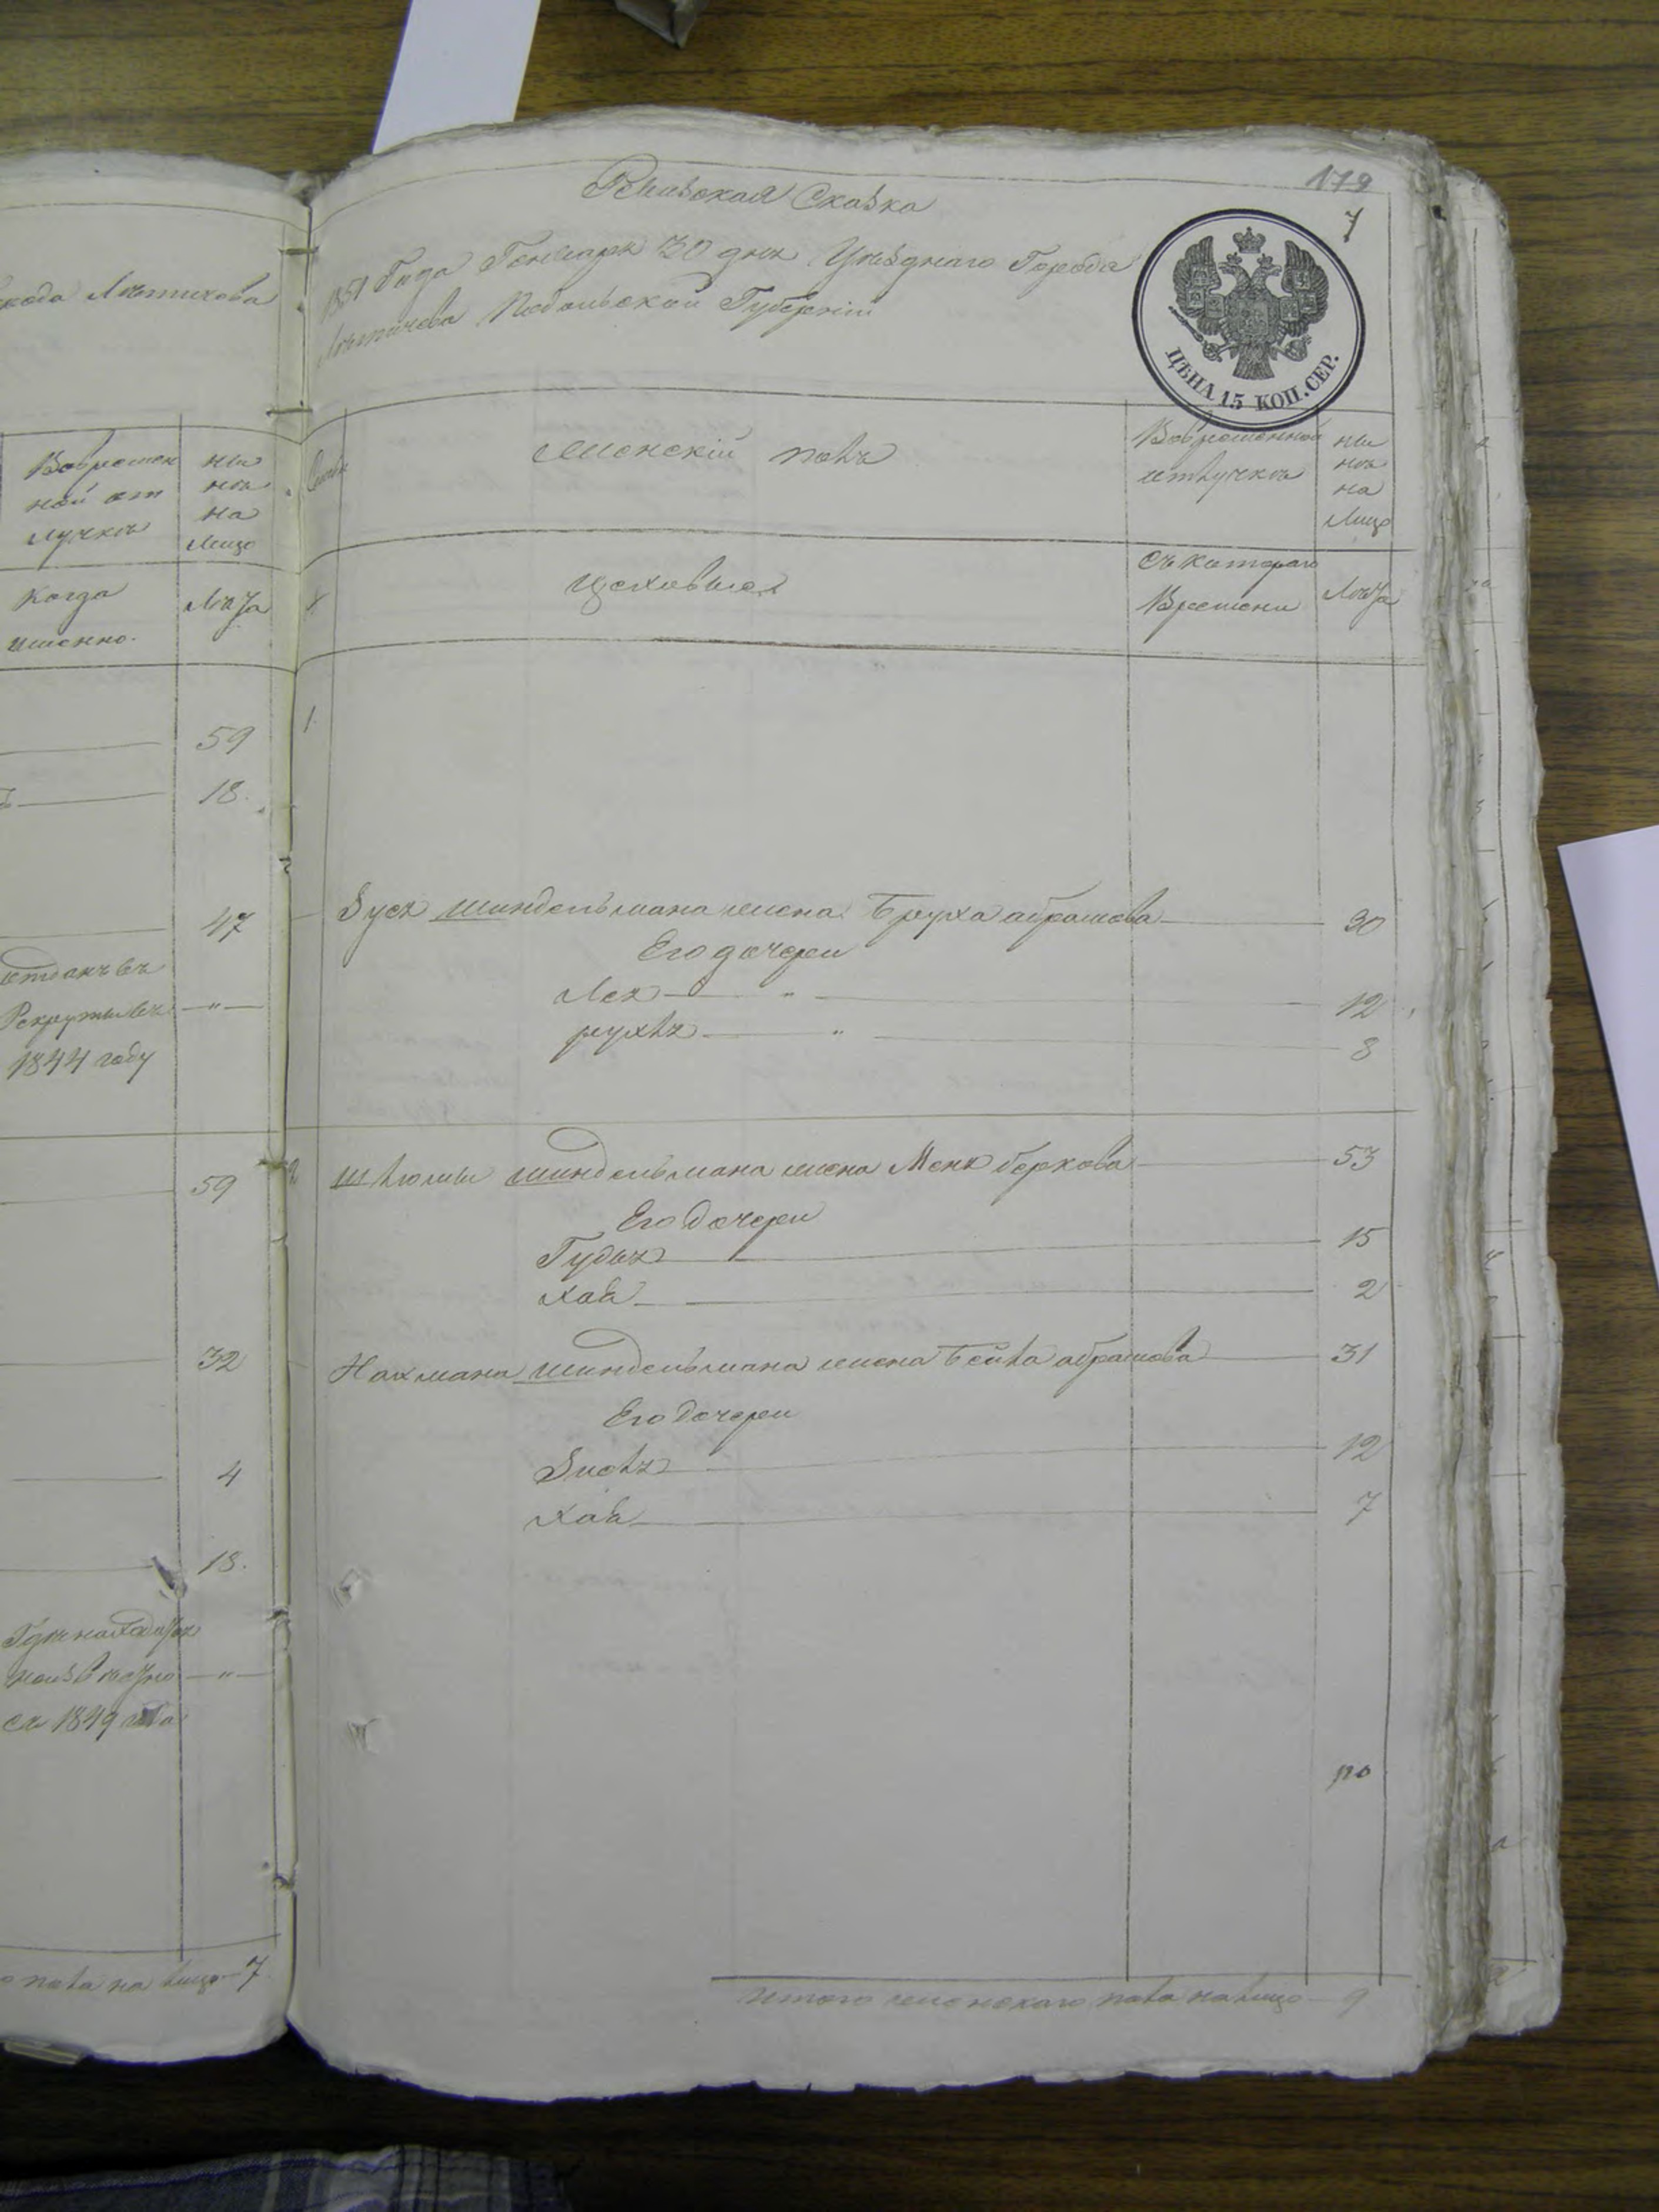 кода Лѣтичова
Вовремен
ной от
лучкѣ
ны
нѣ
на
лицо
Когда
именно.
Лѣта
59
18.
47
отданъ въ
Рекруты въ — " —
1844 году
59
32
4
18.
съ 1849 года
пола на лицо 7
179
7
Ревизская Сказка
1851 Года Генваря 30 дня Уѣзднаго Города
Лѣтичева Подольской Губерніи
ЦѢНА 15 КОП. СЕР.
Женскій полъ
Вовременной
отлучкѣ
ны
нѣ
на
Лицо
Цеховые
Съ котораго
Времени
Лѣта
1
Зуся Шиндельмана жена Бруха абрамова 30
Его дочери
Лея " 12
рухля " 8
2 Шлюмы шиндельмана жена Меня беркова 53
Его дочери
Гудя 15
Хая 2
Нахмана Шиндельмана жена Бейла абрамова 31
Его дочери
Зисля 12
Хая 7
Итого женскаго пола налицо 9